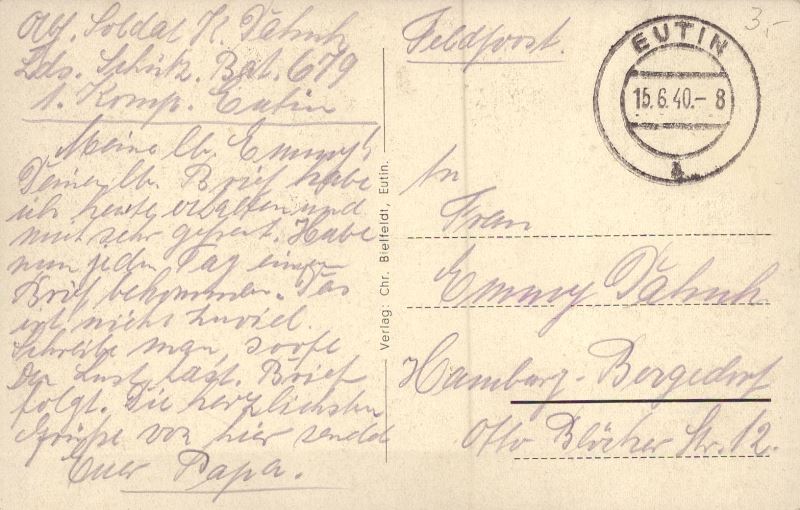 Abs. Soldat K. Dähnk
Lds. Schütz. Bat. 679
1. Komp. Eutin
Meine lb. Emmy!
Deinen lb. Brief habe
ich heute erhalten und
mich sehr gefreut. Habe
nun jeden Tag einen
Brief bekommen. Das
ist nicht zuviel.
Schreibe man, sooft
Du Lust hast. Brief
folgt. Die herzlichsten
Grüße von hier sendet
Euer Papa.
Verlag: Chr. Bielfeldt, Eutin.
Feldpost.
3.-
EUTIN
15.6.40.-8
a
An
Frau
Emmy Dähnk
Hamburg-Bergedorf
Otto Blöcker Str. 12.